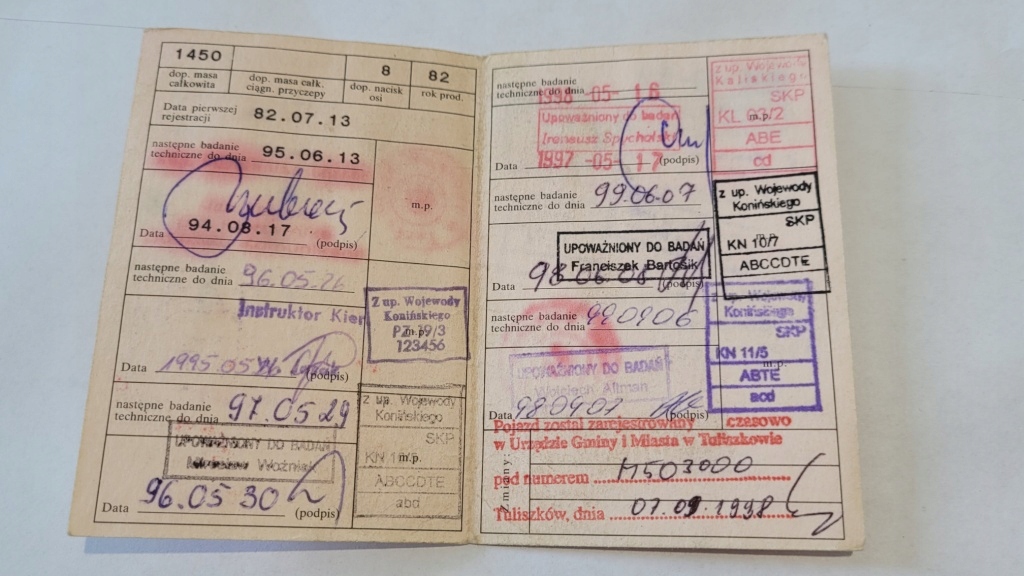 1450 8 82
dop. masa całkowita
dop. masa całk. ciągn. przyczepy
dop. nacisk osi
rok prod.
Data pierwszej rejestracji 82.07.13
następne badanie techniczne do dnia 95.06.13
m.p.
Data 94.08.17 (podpis)
następne badanie techniczne do dnia 96.05.26
Instruktor Kier
Z up. Wojewody
Konińskiego
PZ 19/3
m.p.
123456
Data 1995 05 26 (podpis)
następne badanie techniczne do dnia 97.05 29
UPOWAŻNIONY DO BADAŃ
Woźniak
z up. Wojewody
Konińskiego
SKP
KN 1
m.p.
ABCCDTE
abd
Data 96.05 30 (podpis)
następne badanie techniczne do dnia 1998 -05- 16
Upoważniony do badań
Ireneusz Spychalski
Data 1997 -05- 17 (podpis)
z up. Wojewody
Kaliskiego
SKP
KL m.p.
ABE
cd
następne badanie techniczne do dnia 99.06.07
UPOWAŻNIONY DO BADAŃ
Franciszek Bartosik
Data 98 06 08 (podpis)
z up. Wojewody
Konińskiego
SKP
KN 10/7
ABCCDTE
następne badanie techniczne do dnia 990906
UPOWAŻNIONY DO BADAŃ
Wojciech Altman
Data 980907 (podpis)
z up. Wojewody
Konińskiego
SKP
KN 11/5
m.p.
ABTE
acd
Zmiany:
Pojazd został zarejestrowany czasowo
w Urzędzie Gminy i Miasta w Tuliszkowie
pod numerem M503000
Tuliszków, dnia 07.09.1998